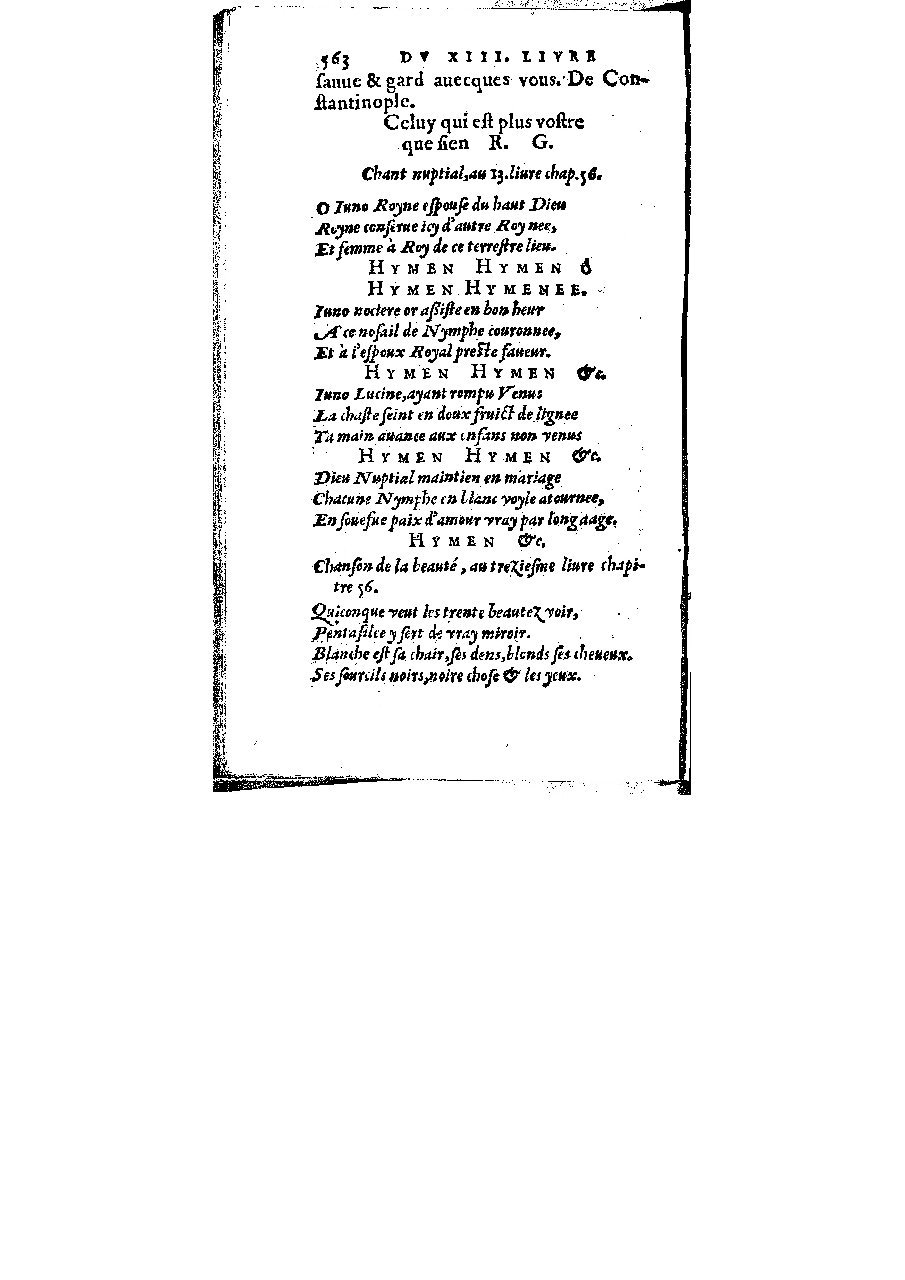 563 DV XIII. LIVRE
ſauue & gard auecques vous. De Con-
ſtantinople.
Celuy qui eſt plus voſtre
que ſien R. G.
Chant nuptial, au 13. liure chap. 56.
O Iuno Royne eſpouſe du haut Dieu
Royne conſerue icy d'autre Roy nee,
Et femme à Roy de ce terreſtre lieu.
HYMEN HYMEN ô
HYMEN HYMENEE.
Iuno nociere or aßiſte en bon heur
A ce noſail de Nymphe couronnee,
Et à l'eſpoux Royal preſte faueur.
HYMEN HYMEN &c.
Iuno Lucine, ayant rompu Venus
La chaſte ſeint en doux fruict de lignee
Ta main auance aux enfans non venus
HYMEN HYMEN &c.
Dieu Nuptial maintien en mariage
Chacune Nymphe en blanc voyle atournee,
En ſoueſue paix d'amour vray par long aage.
HYMEN &c,
Chanſon de la beauté, au treZieſme liure chapi-
tre 56.
Quiconque veut les trente beauteZ voir,
Pentaſilee y ſert de vray miroir.
Blanche eſt ſa chair, ſes dens, blonds ſes cheueux.
Ses ſourcils noirs, noire choſe & les yeux.